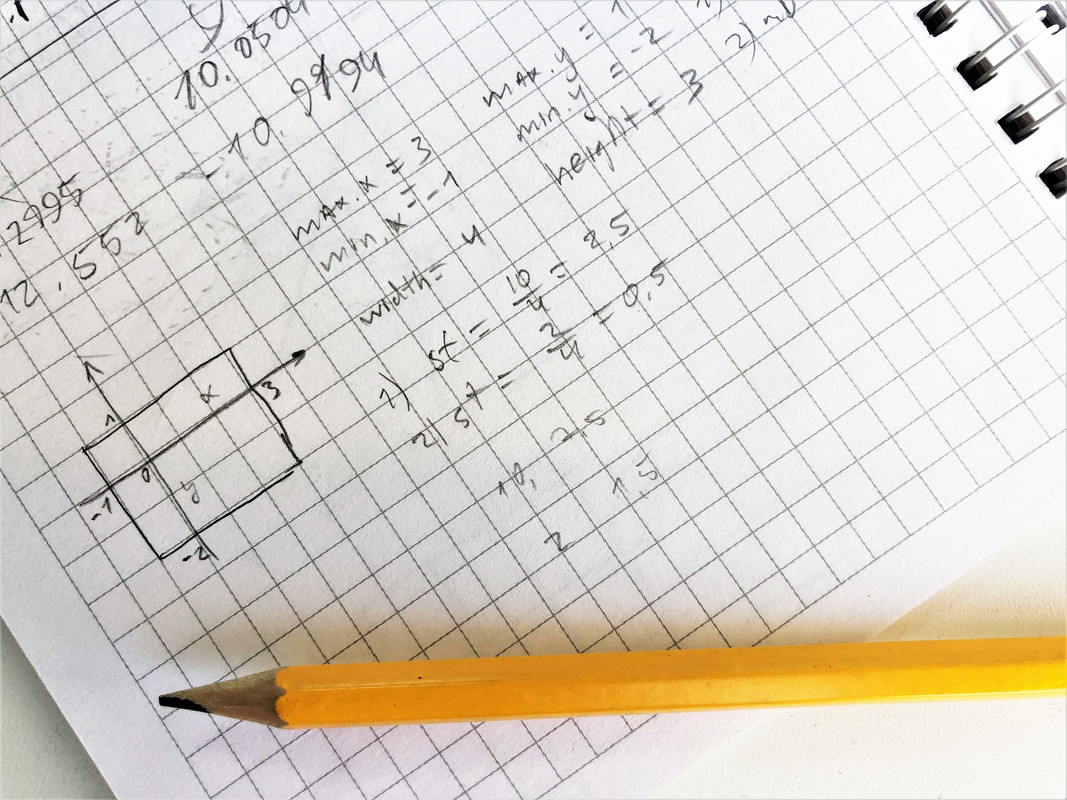 10.0504
10.9994
2995
12.552
max.x = 3
min.x = -1
width = 4
max.y = 1
min.y = -2
height = 3
1)
2)
1) st = 10/4 = 2,5
2) st = 2/4 = 0,5
10, 7,5
2 1,5
x
3
1
0
-1
y
-2